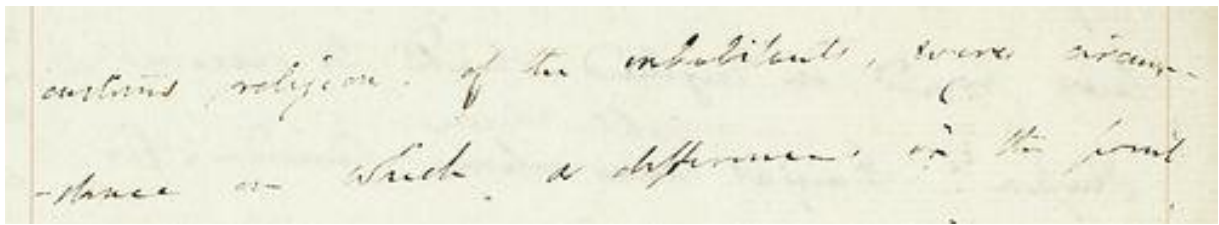 customs religion. of the inhabitants, were circum-
-stance on which a difference. in the point